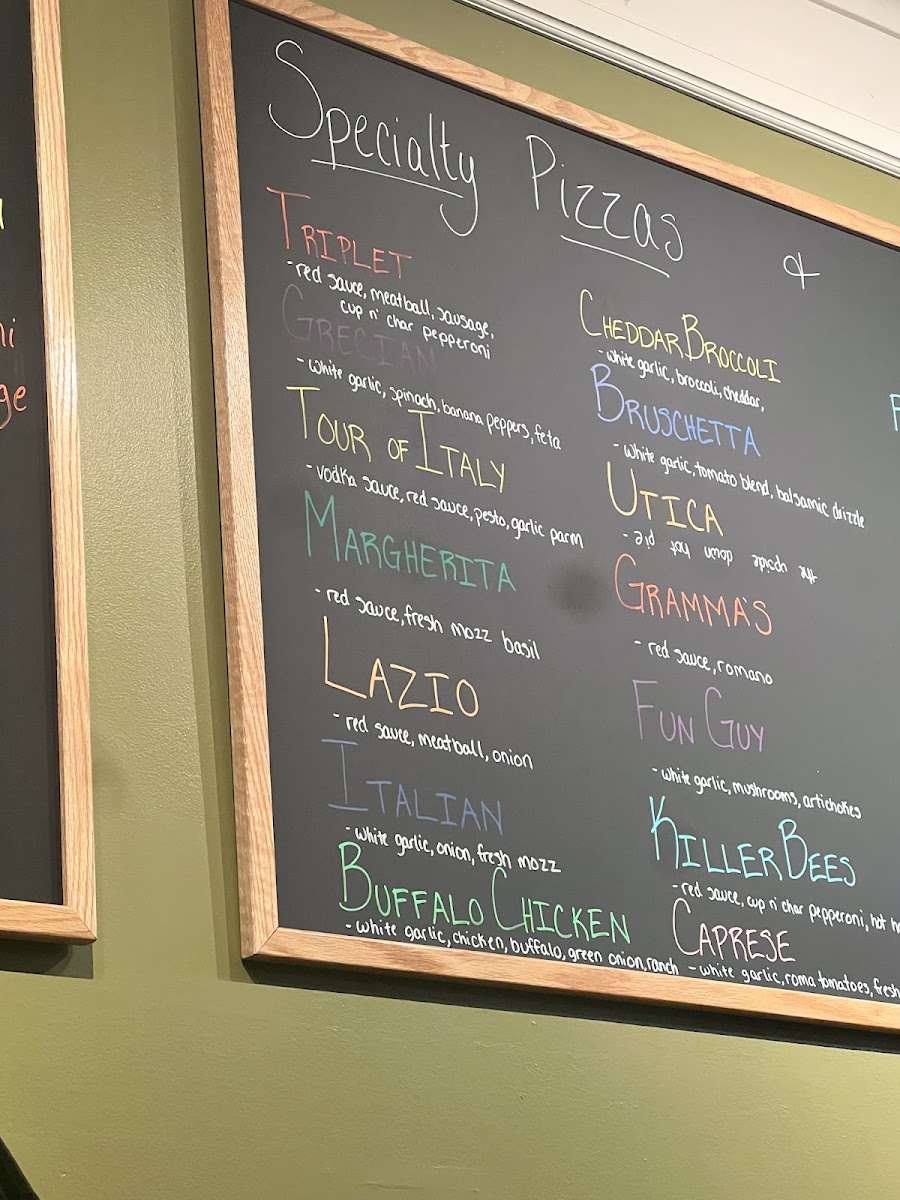 Specialty Pizzas &
TRIPLET
- red sauce, meatball, sausage,
cup n' char pepperoni
GRECIAN
- white garlic, spinach, banana peppers, feta
TOUR OF ITALY
- vodka sauce, red sauce, pesto, garlic parm
MARGHERITA
- red sauce, fresh mozz basil
LAZIO
- red sauce, meatball, onion
ITALIAN
- white garlic, onion, fresh mozz
BUFFALO CHICKEN
- white garlic, chicken, buffalo, green onion, ranch
CHEDDAR BROCCOLI
- white garlic, broccoli, cheddar,
BRUSCHETTA
- white garlic, tomato blend, balsamic drizzle
UTICA
- the upside down hot pie
GRAMMA'S
- red sauce, romano
FUN GUY
- white garlic, mushrooms, artichokes
KILLER BEES
- red sauce, cup n' char pepperoni, hot
CAPRESE
- white garlic, roma tomatoes, fresh